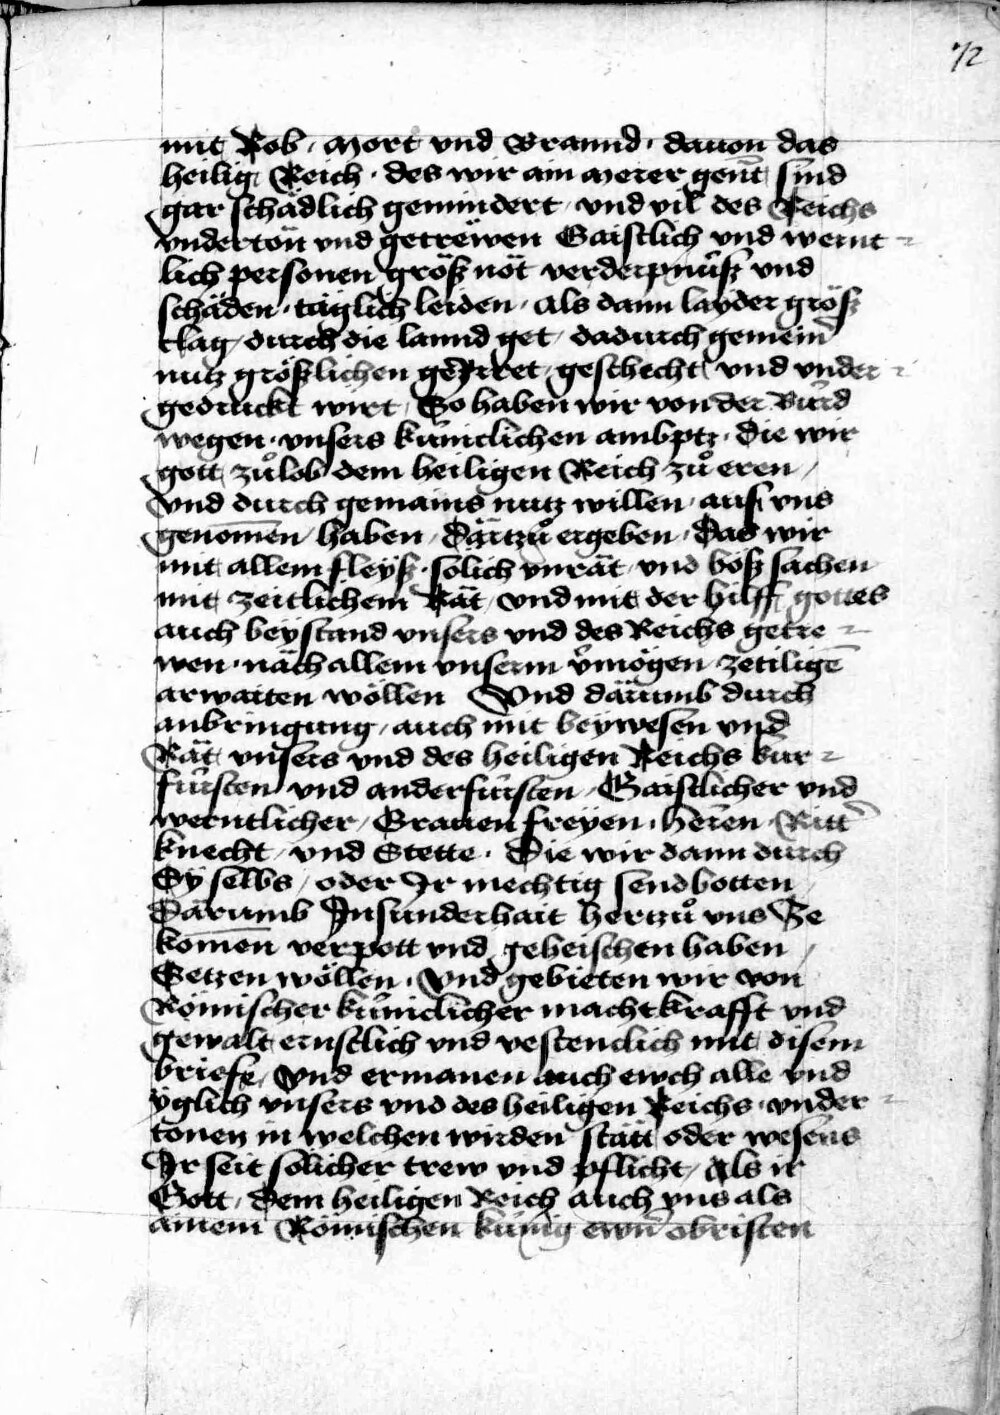 72
mit Rob, Mort und Brannd, dauon das
heilig Reich, des wir ain merer geñt sind
gar schädlich gemindert, vnd vil des Reichs
vndertön vnd getrëwen Gaistlich vnd wernt-
lich personen größ nöt verderpnüß vnd
schäden, täglich leiden, Als dann layder größ
clag, durch die lannd get, dadurch gemein
nutz größlichen geirret, geschecht vnd vnder-
gedruckt wirt, So haben wir von der Bürd
wegen, vnsers küniclichen ambptz, die wir
gott zů lob dem heiligen Reich zů eren,
Vnd durch gemains nutz willen, auf vns
genom̄en haben, därtzů ergeben, Das wir
mit allem fleyß, solich vnrät, vnd böß sachen
mit zeitlichem Rät, vnd mit der hilff gottes
auch beystand vnsers vnd des Reichs getre-
wen, näch allem vnserm v̄mögen zetiligē
arwaiten wöllen Vnd därumb durch
anbringung, auch mit beywesen vnd
Rät vnsers vnd des heiligen Reichs kur-
fürsten vnd ander fürsten, Gaistlicher vnd
werntlicher, Grauen freyen, herren, Ritt̄
knecht, vnd Stette. Die wir dann durch
Sy selbs, oder Ir mechtig sendbotten,
Därumb Insunderhait hertzů vns Ze
kom̄en verpott vnd geheischen haben,
Setzen wöllen, Vnd gebieten wir von
Römischer küniclicher macht krafft vnd
gewalt ernstlich vnd vestenclich mit disem
briefe, Vnd ermanen auch ewch alle vnd
yglich vnsers vnd des heiligen Reichs, vnder-
tonen in welchen wirden stätt oder wesens
Ir seit solicher trew vnd pflicht, Als ir
Gott, Dem heiligen Reich auch vns als
ainem Römischen künig ewrn̄ obristen